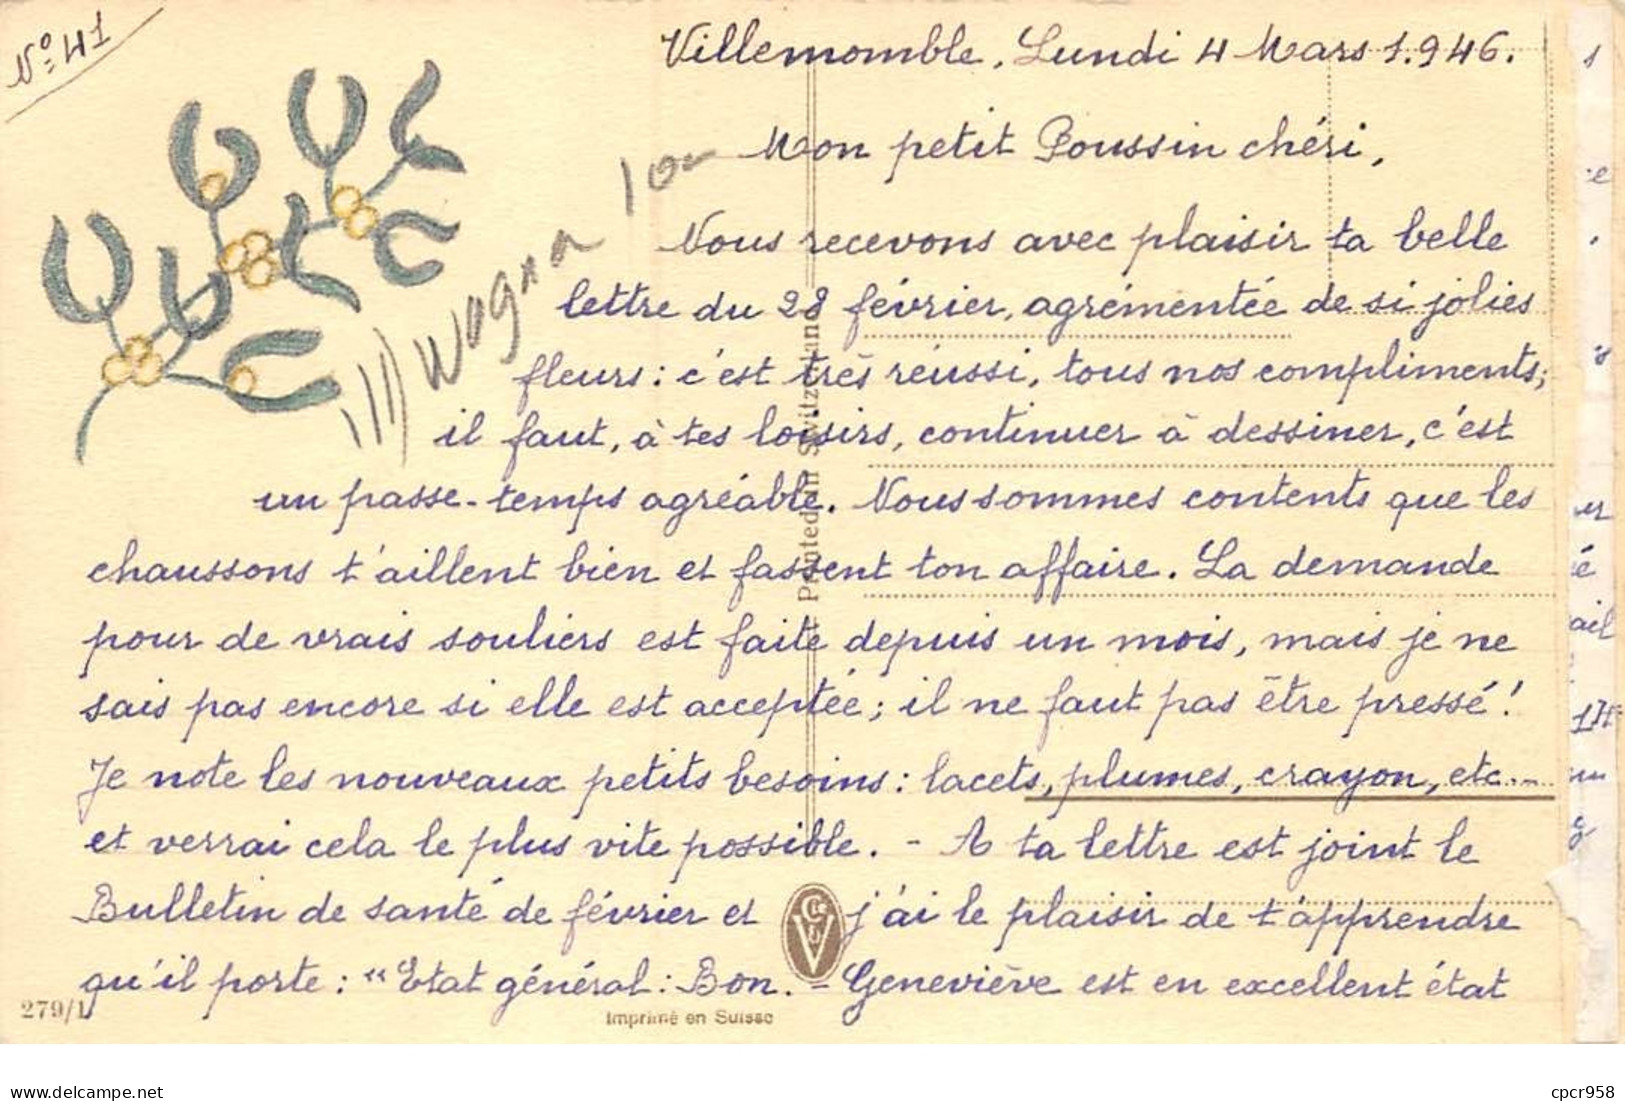 Nº 41
Villemomble, Lundi 4 Mars 1.946.
Mon petit Poussin chéri,
Nous recevons avec plaisir ta belle
lettre du 28 février, agrémentée de si jolies
fleurs : c'est très réussi, tous nos compliments ;
il faut, à tes loisirs, continuer à dessiner, c'est
un passe-temps agréable. Nous sommes contents que les
chaussons t'aillent bien et fassent ton affaire. La demande
pour de vrais souliers est faite depuis un mois, mais je ne
sais pas encore si elle est acceptée ; il ne faut pas être pressé !
Je note les nouveaux petits besoins : lacets, plumes, crayon, etc...
et verrai cela le plus vite possible. - A ta lettre est joint le
Bulletin de santé de février et j'ai le plaisir de t'apprendre
qu'il porte : "Etat général : Bon. - Geneviève est en excellent état
Wagner 10
Printed in Switzerland
279/1
Imprimé en Suisse
delcampe.net
cpcr958